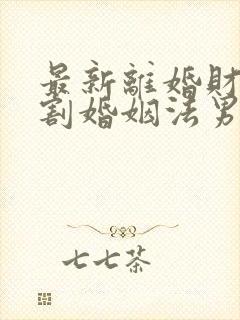 最新離婚財
割婚姻法男
七七茶